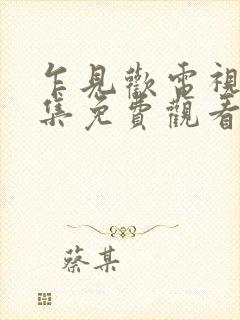 乍見歡電視
集免費觀看
蔡某